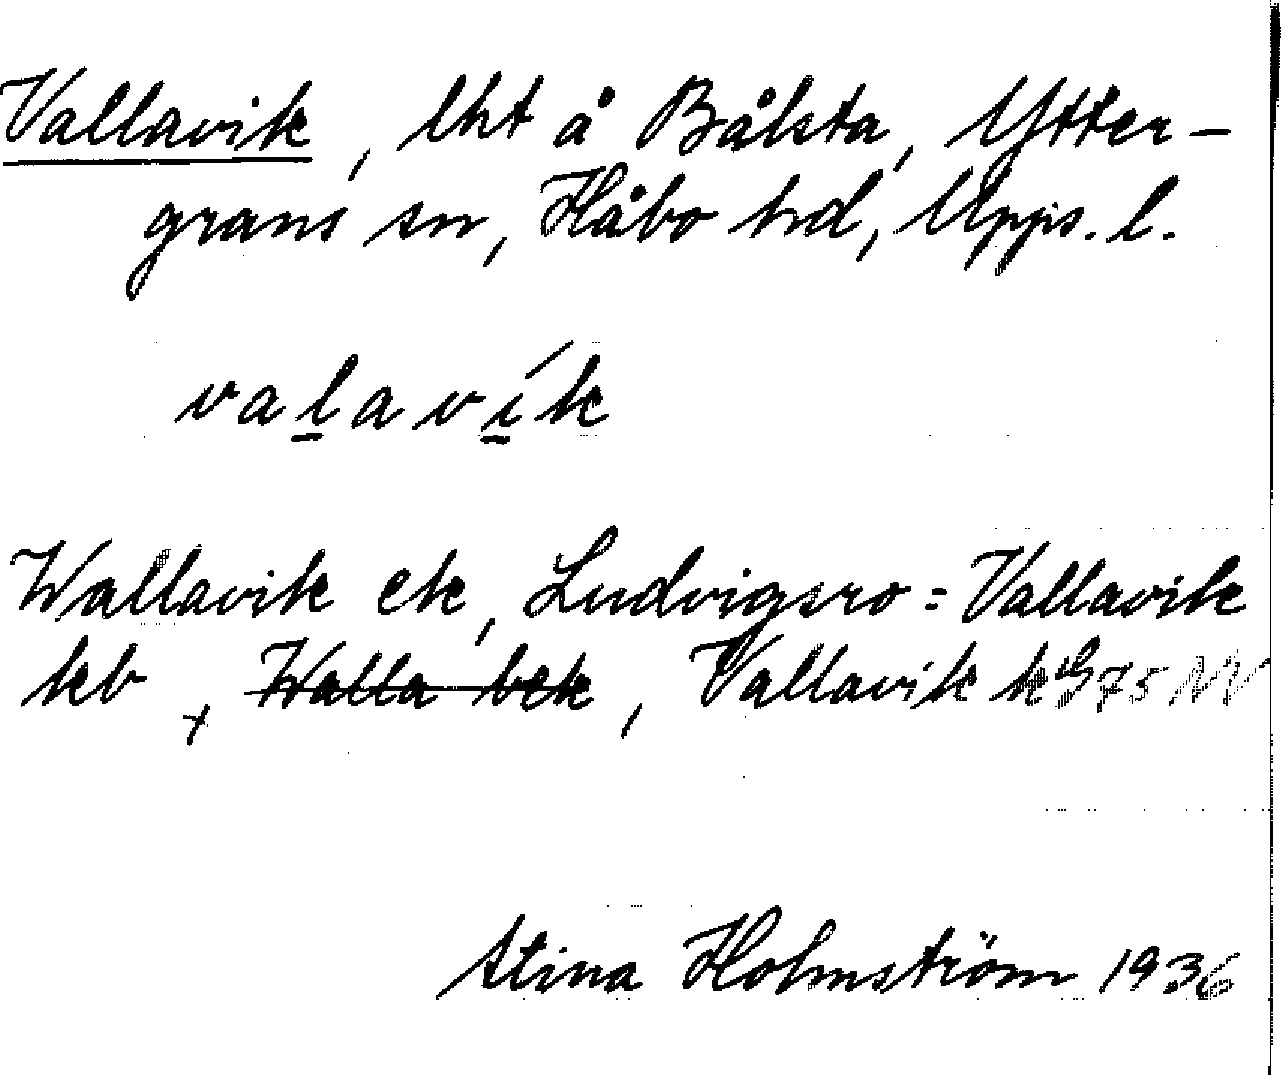 Vallavik, lht å Bålsta, Ytter-
grans sn, Håbo hd, Upps. l.
valavík
Wallavik ek, Ludvigsro = Vallavik
kb, Walla bek, Vallavik k G75 NV
Stina Holmström 1936